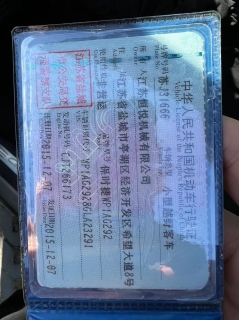 中华人民共和国机动车行驶证
号牌号码 苏J21666 车辆类型 小型越野客车
所有人 江苏恒悦机幕有限公司
住址 江苏省盐城市亭湖区经济开发区希望大道8号
使用性质 非营运 品牌型号 保时捷WP1AG292
江苏省盐城
市公安局交
通警察支队
车辆识别代号 WP1AG2928GLA23291
发动机号码 CJT206173
注册日期 2015-12-07 发证日期 2015-12-07